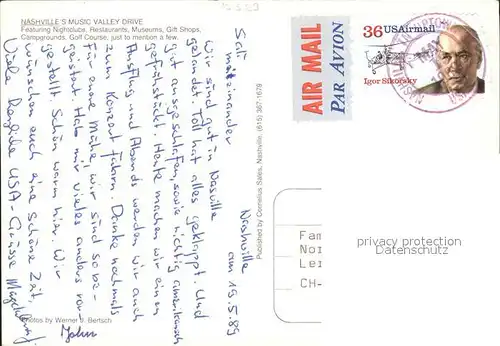 NASHVILLE'S MUSIC VALLEY DRIVE
Featuring Nightclubs, Restaurants, Museums, Gift Shops,
Campgrounds, Golf Course, just to mention a few.
Nashville
am 19.5.89
Sali
miteinander
Wir sind gut in Nasville
gelandet. Toll hat alles geklappt. Und
gut ausgeschlafen, sowie richtig amerikanisch
gefrühstückt. Heute machen wir einen
Ausflug und Abends werden wir auch
zum Konzert fahren. Danke nochmals
für eure Mühe, wir sind so be-
geistert. Hab mir vieles anders vor-
gestellt. Schön warm hier. Wir
wünschen euch eine schöne Zeit,
Viele herzliche USA-Grüsse
John
Photos by Werner J. Bertsch
Published by Cornelius Sales, Nashville, (615) 367-1679
AIR MAIL
PAR AVION
36 USAirmail
Igor Sikorsky
Fam
Nor
Ler
CH-
privacy protection
Datenschutz